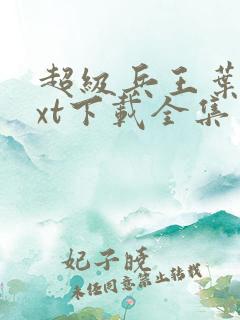 超级兵王葉
xt下載全集
妃子曉
未经同意禁止转载